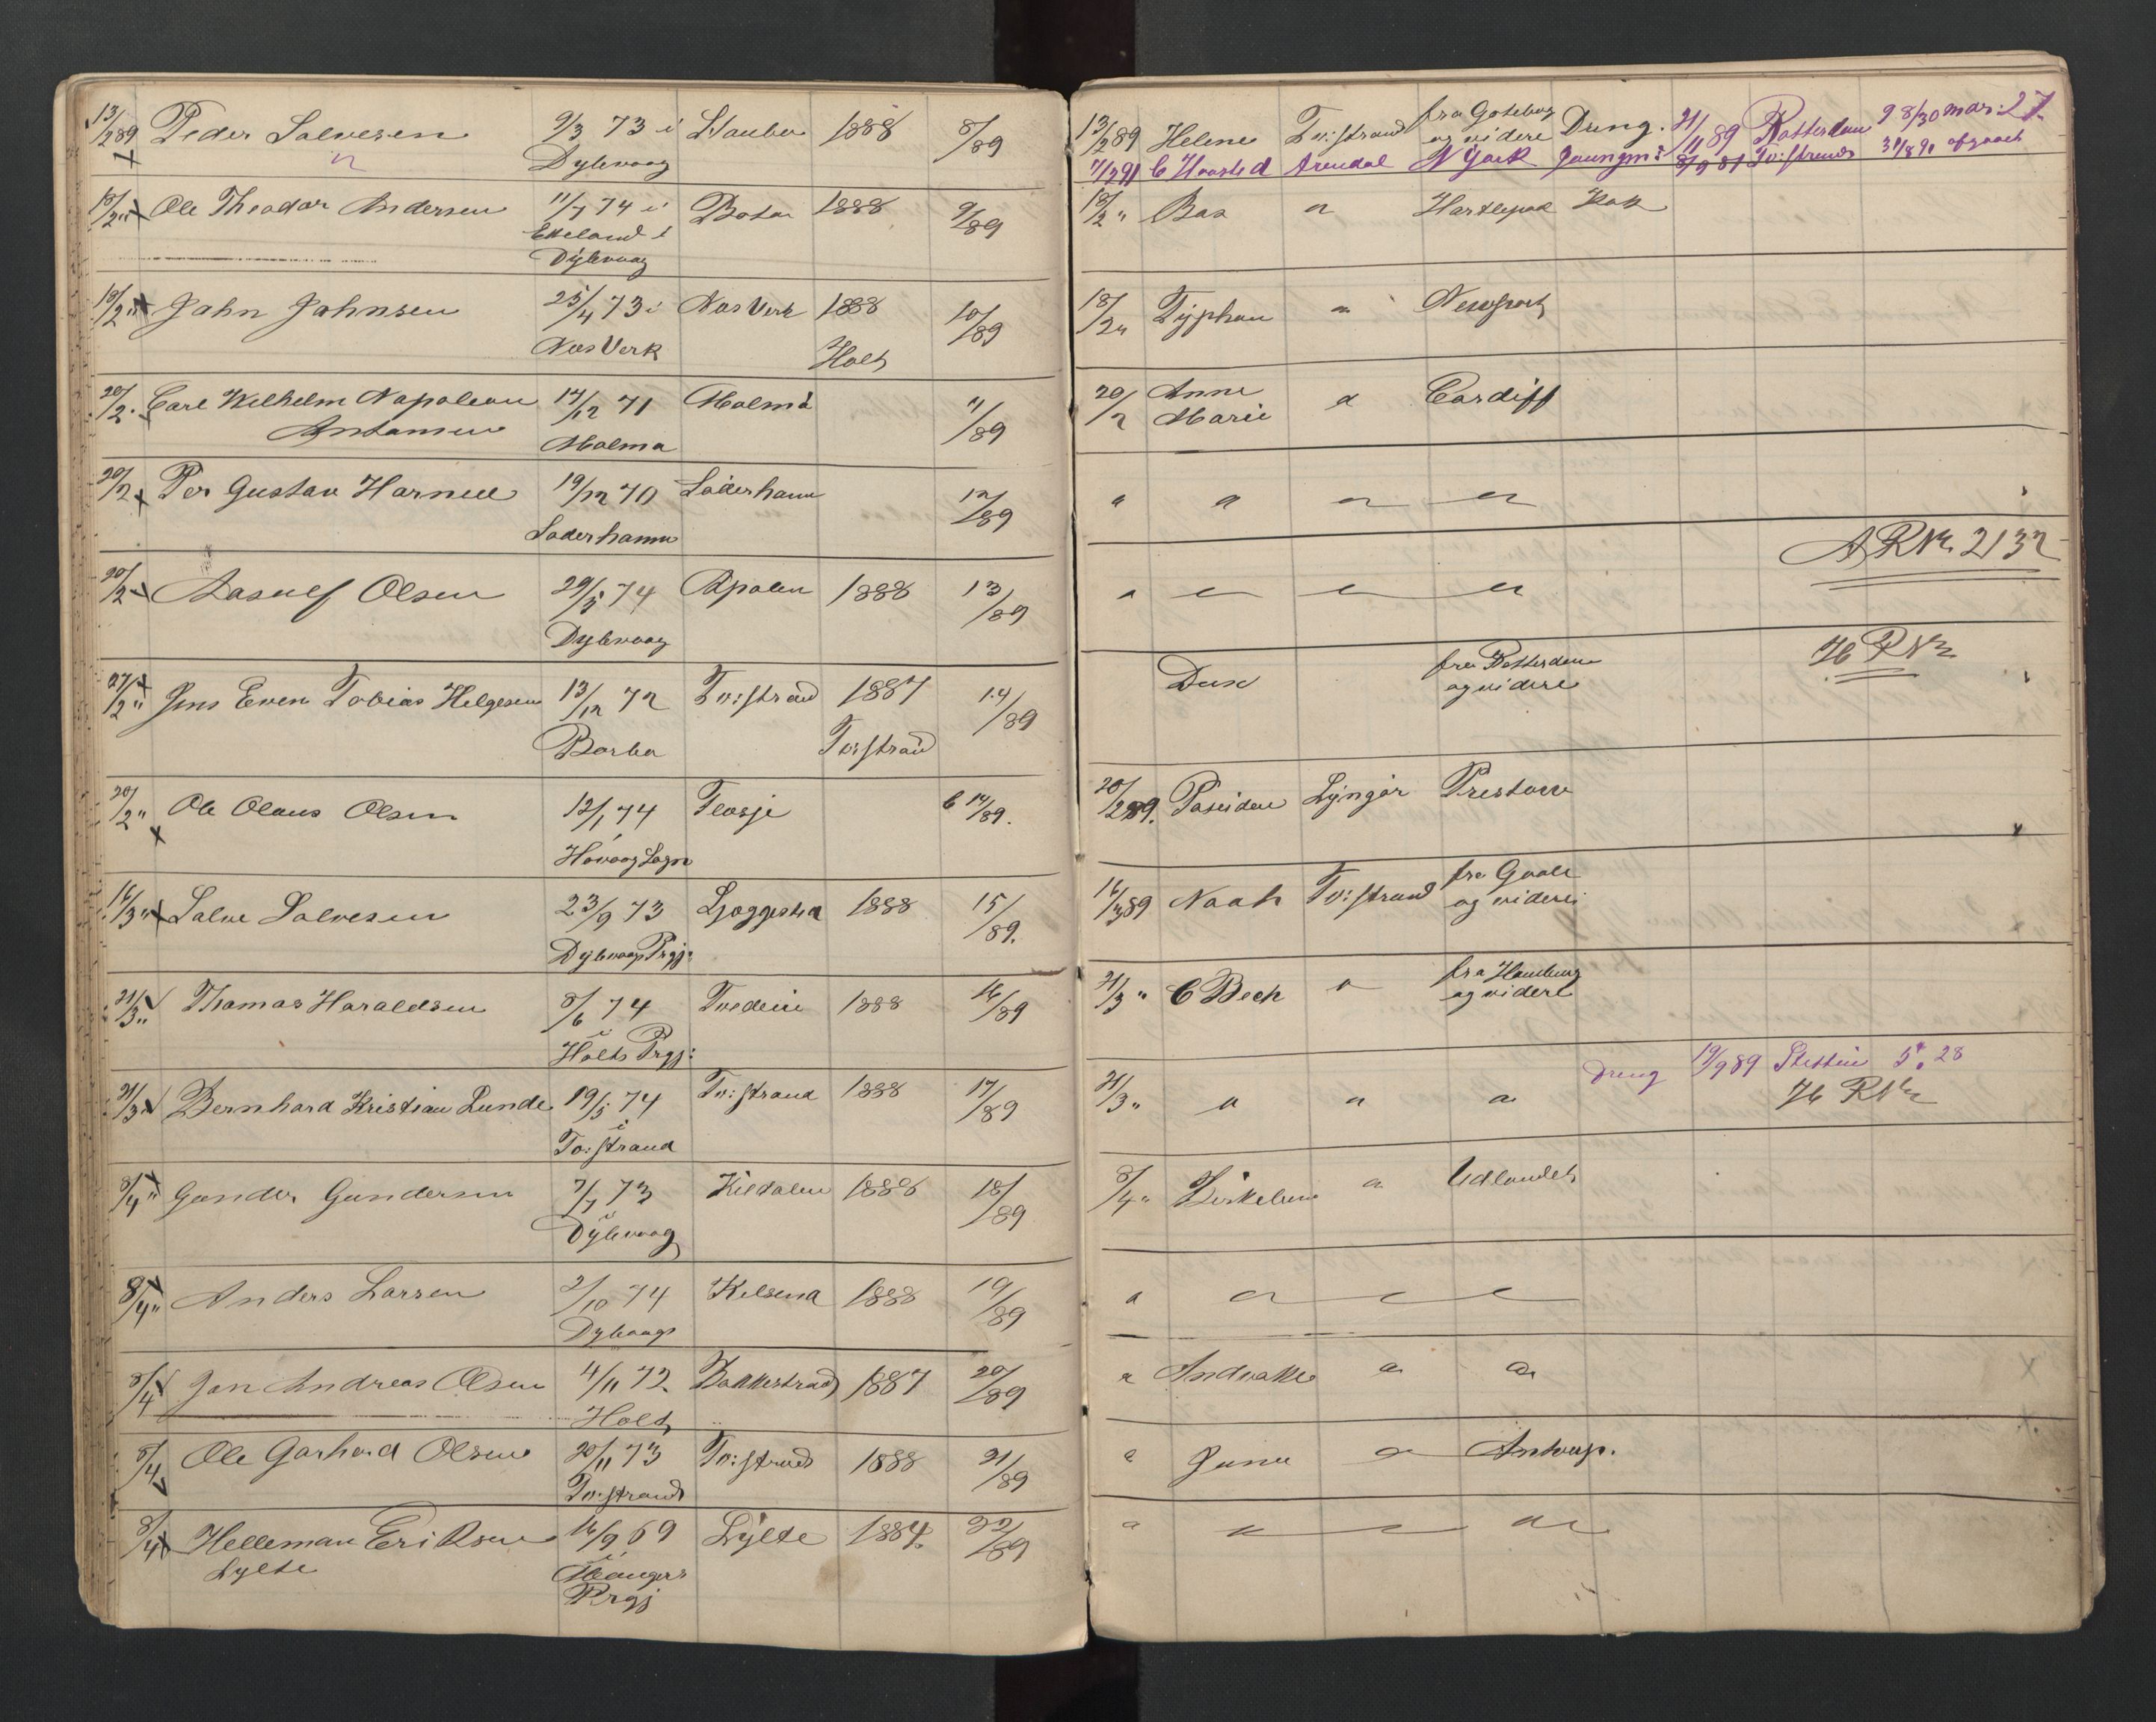 13/2 89 Peder Salvesen 9/3 73 i 1888 8/89
Dybvaag
18/2 " Ole Theodor Andersen 11/7 74 i Bota 1888 9/89
Ekeland i
Dybvaag
18/2 " John Johnsen 25/4 73 i Næs Verk 1888 10/89
Næs Verk Holt
20/2 " Carl Wilhelm Napoleon 14/12 71 Malmö 11/89
Antonsen Malmø
20/2 Per Gustav Harnell 19/12 70 Söderhamn 12/89
Søderhamn
20/2 Aasulf Olsen 29/5 74 1888 13/89
Dybvaag
27/2 " Jens Even Tobias Helgesen 13/12 72 Tv:strand 1887 14/89
Borbu Tv:strand
20/2 " Ole Olaus Olsen 12/1 74 Flosje b 14/89.
Høvaag Sogn
16/3 " Salve Salvesen 23/9 73 1888 15/89.
Dybvaags Prgj:
21/3 " Thomas Haraldsen 8/6 74 Tvedeie 1888 16/89
i
Holts Prgj:
21/3 " Bernhard Kristian Lunde 19/5 74 Tv:strand 1888 17/89
i
Tv:strand
8/4 " Gunder Gundersen 7/7 73 Kildalen 1888 18/89
i
Dybvaag
8/4 " Anders Larsen 2/10 74 1888 19/89
Dybvaag
8/4 Jan Andreas Olsen 4/11 72 Bakkestrand 1887 20/89
Holt
8/4 Ole Gerhard Olsen 20/11 73 Tv:strand 1888 21/89
Tv:strand
8/4 Helleman Eriksen 16/9 69 Lylte 1884. 22/89
Lylte i
Mangers
Prgj
13/2 89 Helene Tv:strand fra Goteborg og videre Dreng. 21/11 89 Rotterdam 9 8/30 mdr: 27.
C Haasted Arendal N York Jungm: Tv:strand afgaaet
18/2 " Bas " Hartlepool Kok
18/2 " Typhon " Newport
20/2 Anne Marie " Cardiff
" " " "
A R Nr. 2132
" " " "
Dux fra Rotterdam og videre H R Nr
20/2 89. Poseidon Lyngør Preston
16/3 89 Noah Tv:strand fra Goole og videre
21/3 " C Bech " fra Hamburg og videre
Dreng 19/9 89 Stettin 5". 28
21/3 " " " " H R Nr
8/4 " Birkelund " Udlandet
" " " "
" Andvakke " "
" Juno " Antverp.
" " " "